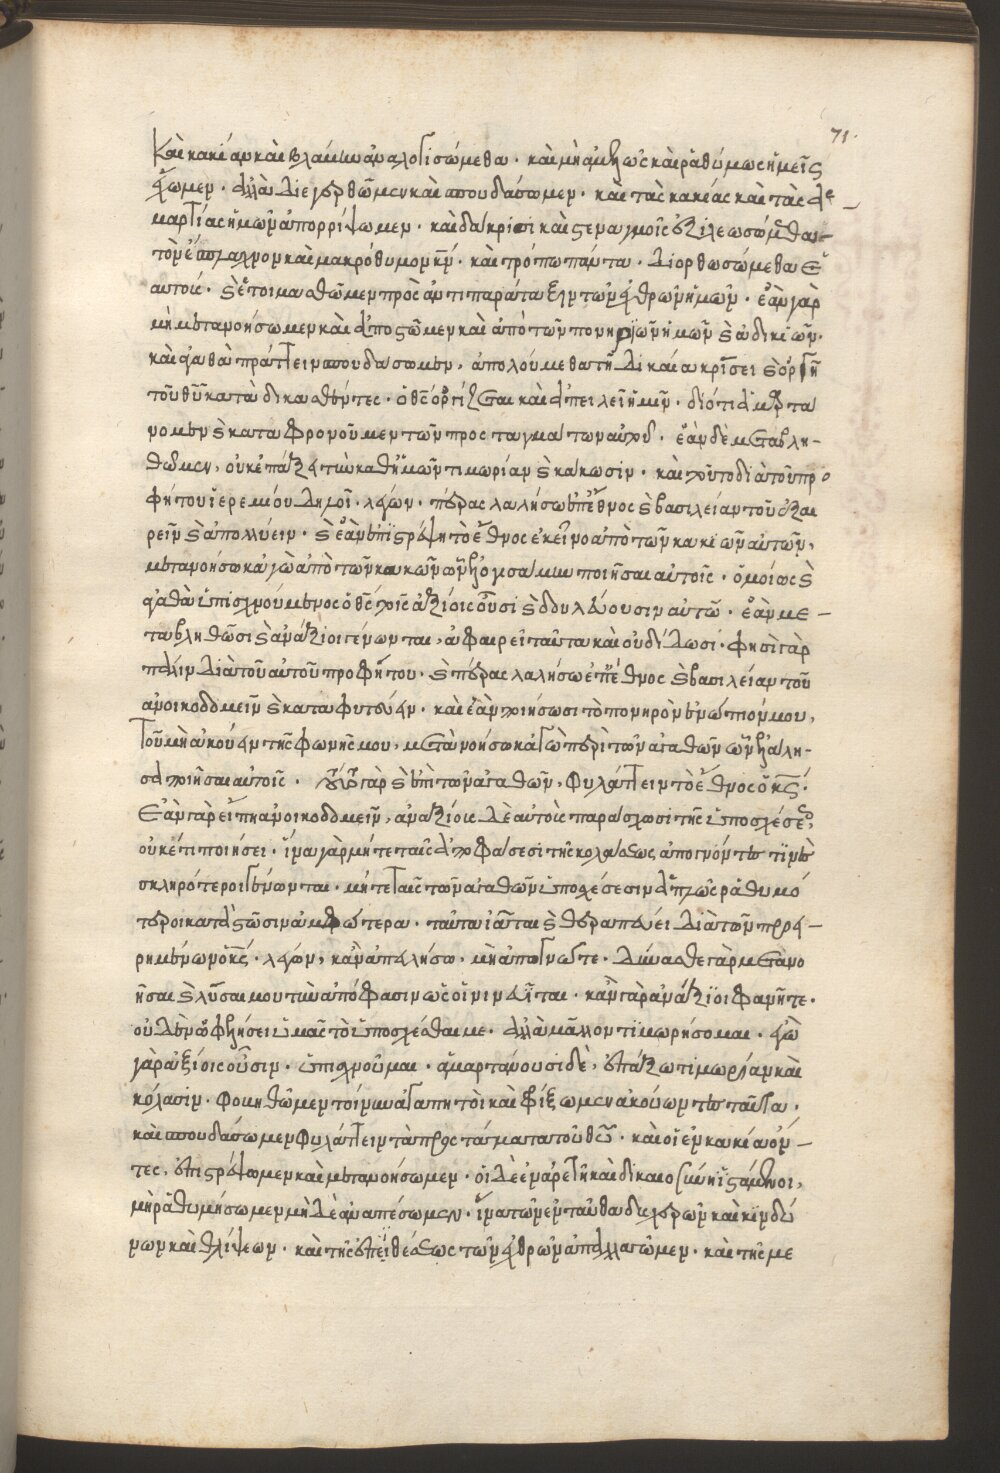 71.
καὶ κακίαν καὶ βλάβην ἀναλογισώμεθα. καὶ μὴ ἀμελῶς καὶ ῥαθύμως ἡμεῖς
ἔχωμεν. ἀλλὰ διεγερθῶμεν καὶ σπουδάσωμεν. καὶ τὰς κακίας καὶ τὰς ἁ-
μαρτίας ἡμῶν ἀπορρίψωμεν. καὶ δάκρισι καὶ στεναγμοῖς ἐξιλεωσώμεθα
τὸν εὔσπλαχνον καὶ μακρόθυμον κν. καὶ τρόπω παντα. διορθωσώμεθα ἑ
αυτούς. καὶ ἕτοιμασθῶμεν πρὸς ἀντιπαράταξιν τῶν ἐχθρῶν ἡμῶν. ἐὰν γὰρ
μὴ μετανοήσωμεν καὶ ἀποστῶμεν καὶ ἀπὸ τῶν πονηριῶν ἡμῶν καὶ ἀδικιῶν.
καὶ ἀγαθὰ πράττειν σπουδάσωμεν, ἀπολούμεθα τῆ δικαία κρίσει καὶ ὀργῆ
τοῦ θῦ καταδικασθέντες. ὁ θς ὀργίζεται καὶ ἀπειλεῖ ἡμῖν. διότι ἁμαρτα
νομεν καὶ καταφρονοῦμεν τῶν προσταγμάτων αὐτοῦ. ἐὰν δὲ μεταβλη-
θῶμεν, οὐκ ἐπάξει τὴν καθ' ἡμῶν τιμωρίαν καὶ κακωσιν. καὶ τοῦτο διὰ τοῦ προ
φήτου ἱερεμίου δηλοῖ. λέγων. πέρας λαλήσω ἐπ' ἔθνος καὶ βασιλείαν τοῦ ἐξαι
ρεῖν καὶ ἀπολλύειν. καὶ ἐὰν ἐπιστρέψη τὸ ἔθνος ἐκεῖνο ἀπὸ τῶν κακιῶν αὐτῶν,
μετανοήσω κἀγὼ ἀπὸ τῶν κακῶν ὧν ἐλογισάμην ποιῆσαι αὐτοῖς. ὁμοίως καὶ
ἀγαθὰ ὑπισχνούμενος ὁ θς τοῖς ἀξίοις οὖσι καὶ δουλεύουσιν αὐτῶ. ἐὰν με-
ταβληθῶσι καὶ ἀνάξιοι γένωνται, ἀφαιρεῖ ταῦτα καὶ οὐ δίδωσι. φησὶ γὰρ
πάλιν διὰ τοῦ αὐτοῦ προφήτου. καὶ πέρας λαλήσω ἐπ' ἔθνος καὶ βασιλείαν τοῦ
ἀνοικοδομεῖν καὶ καταφυτεύειν. καὶ ἐὰν ποιήσωσι τὸ πονηρὸν ἐνώπιόν μου,
τοῦ μὴ ἀκούειν τῆς φωνῆς μου, μετανοήσω κἀγὼ περὶ τῶν ἀγαθῶν ὧν ἐλάλη-
σα ποιῆσαι αὐτοῖς. γὰρ καὶ ἐπὶ τῶν ἀγαθῶν, φυλάττειν τὸ ἔθνος ὁ κς.
ἐὰν γὰρ εἴπη ἀνοικοδομεῖν, ἀναξίους δὲ αὐτοὺς παρασχωσι τῆς ὑποσχέσεως,
οὐκέτι ποιήσει. ἵνα γὰρ μήτε ταῖς ἀποφάσεσι τῆς κολάσεως ἀπογνόντες τινὲς
σκληρότεροι γένωνται. μήτε ταῖς τῶν ἀγαθῶν ὑποσχέσεσιν ἁπλῶς ῥαθυμό
τεροι καταστῶσιν ἀμφώτερα. ταῦτα ἰᾶται καὶ θεραπεύει διὰ τῶν προει-
ρημένων ὁ κς. λέγων, κἂν ἀπειλήσω, μὴ ἀπογνῶτε. δύνασθε γὰρ μετανο
ῆσαι καὶ λῦσαι μου τὴν ἀπόφασιν ὡς οἱ νινευῖται. κἂν γὰρ ἀνάξιοι φανῆτε.
οὐδὲν ὠφελήσει ὑμᾶς τὸ ὑποσχέσθαι με. ἀλλὰ μᾶλλον τιμωρήσομαι. ἐγὼ
γὰρ ἀξίοις οὖσιν. ὑπισχνοῦμαι. ἁμαρτάνουσι δὲ, ἐπάξω τιμωρίαν καὶ
κόλασιν. φοβηθῶμεν τοίνυν ἀγαπητοὶ καὶ φρίξωμεν ἀκούωντες ταῦτα.
καὶ σπουδάσωμεν φυλάττειν τὰ προστάγματα τοῦ θῦ. καὶ οἱ ἐν κακία ὄν-
τες, ἐπιστρέψωμεν καὶ μετανοήσωμεν. οἱ δὲ ἐν ἀρετῆ καὶ δικαιοσύνη ἱστάμενοι,
μὴ ῥαθυμήσωμεν μὴ δὲ ἀναπέσωμεν. ἵνα τῶν ἐνταῦθα δυσχερῶν καὶ κινδύ
νων καὶ θλίψεων. καὶ τῆς ἐπιθέσεως τῶν ἐχθρῶν ἀπαλλαγῶμεν. καὶ τῆς με